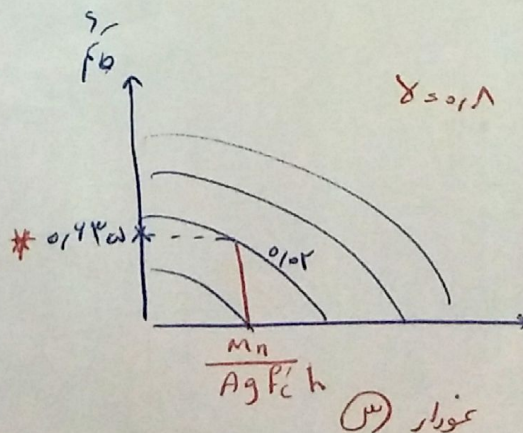 γ = ۰٫۸
* ۰٫۶۳۵
۰٫۰۲
Mn
Ag f'c h
نمودار ۳